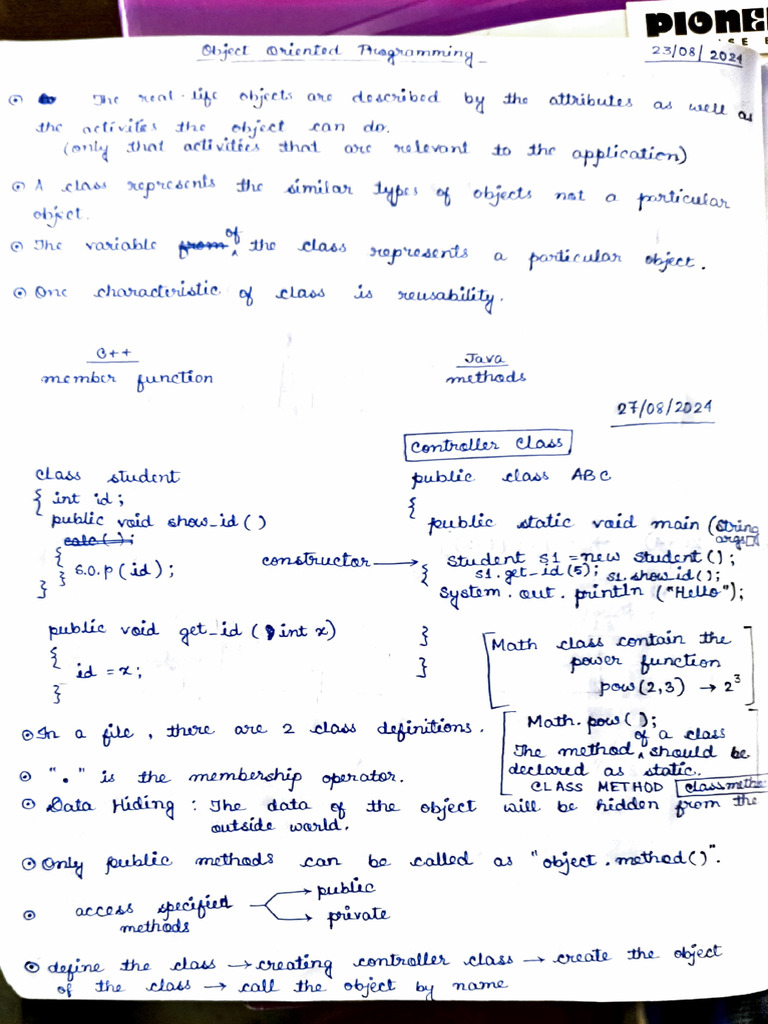 PIONE
SE E
Object Oriented Programming
23/08/2024
The real-life objects are described by the attributes as well as
the activites the object can do.
(only that activities that are relevant to the application)
A class represents the similar types of objects not a particular
object.
The variable from of the class represents a particular object.
One characteristic of class is reusability.
C++
member function
Java
methods
27/08/2024
Controller Class
class student
{ int id;
public void show_id()
calc();
{
S.O.P (id);
}
}
public void get_id (int x)
{
id = x;
}
public class ABC
{
public static void main (String
args[]
{
constructor → Student s1 = new student();
s1.get_id(5); s1.show_id();
System.out.println ("Hello");
}
}
[Math class contain the
power function
pow(2,3) → 2³]
[Math.pow();
The method of a class should be
declared as static.
CLASS METHOD classmetho
In a file, there are 2 class definitions.
"." is the membership operator.
Data Hiding : The data of the object will be hidden from the
outside world.
Only public methods can be called as "object.method()".
access specified
methods
→ public
→ private
define the class → creating controller class → create the object
of the class → call the object by name